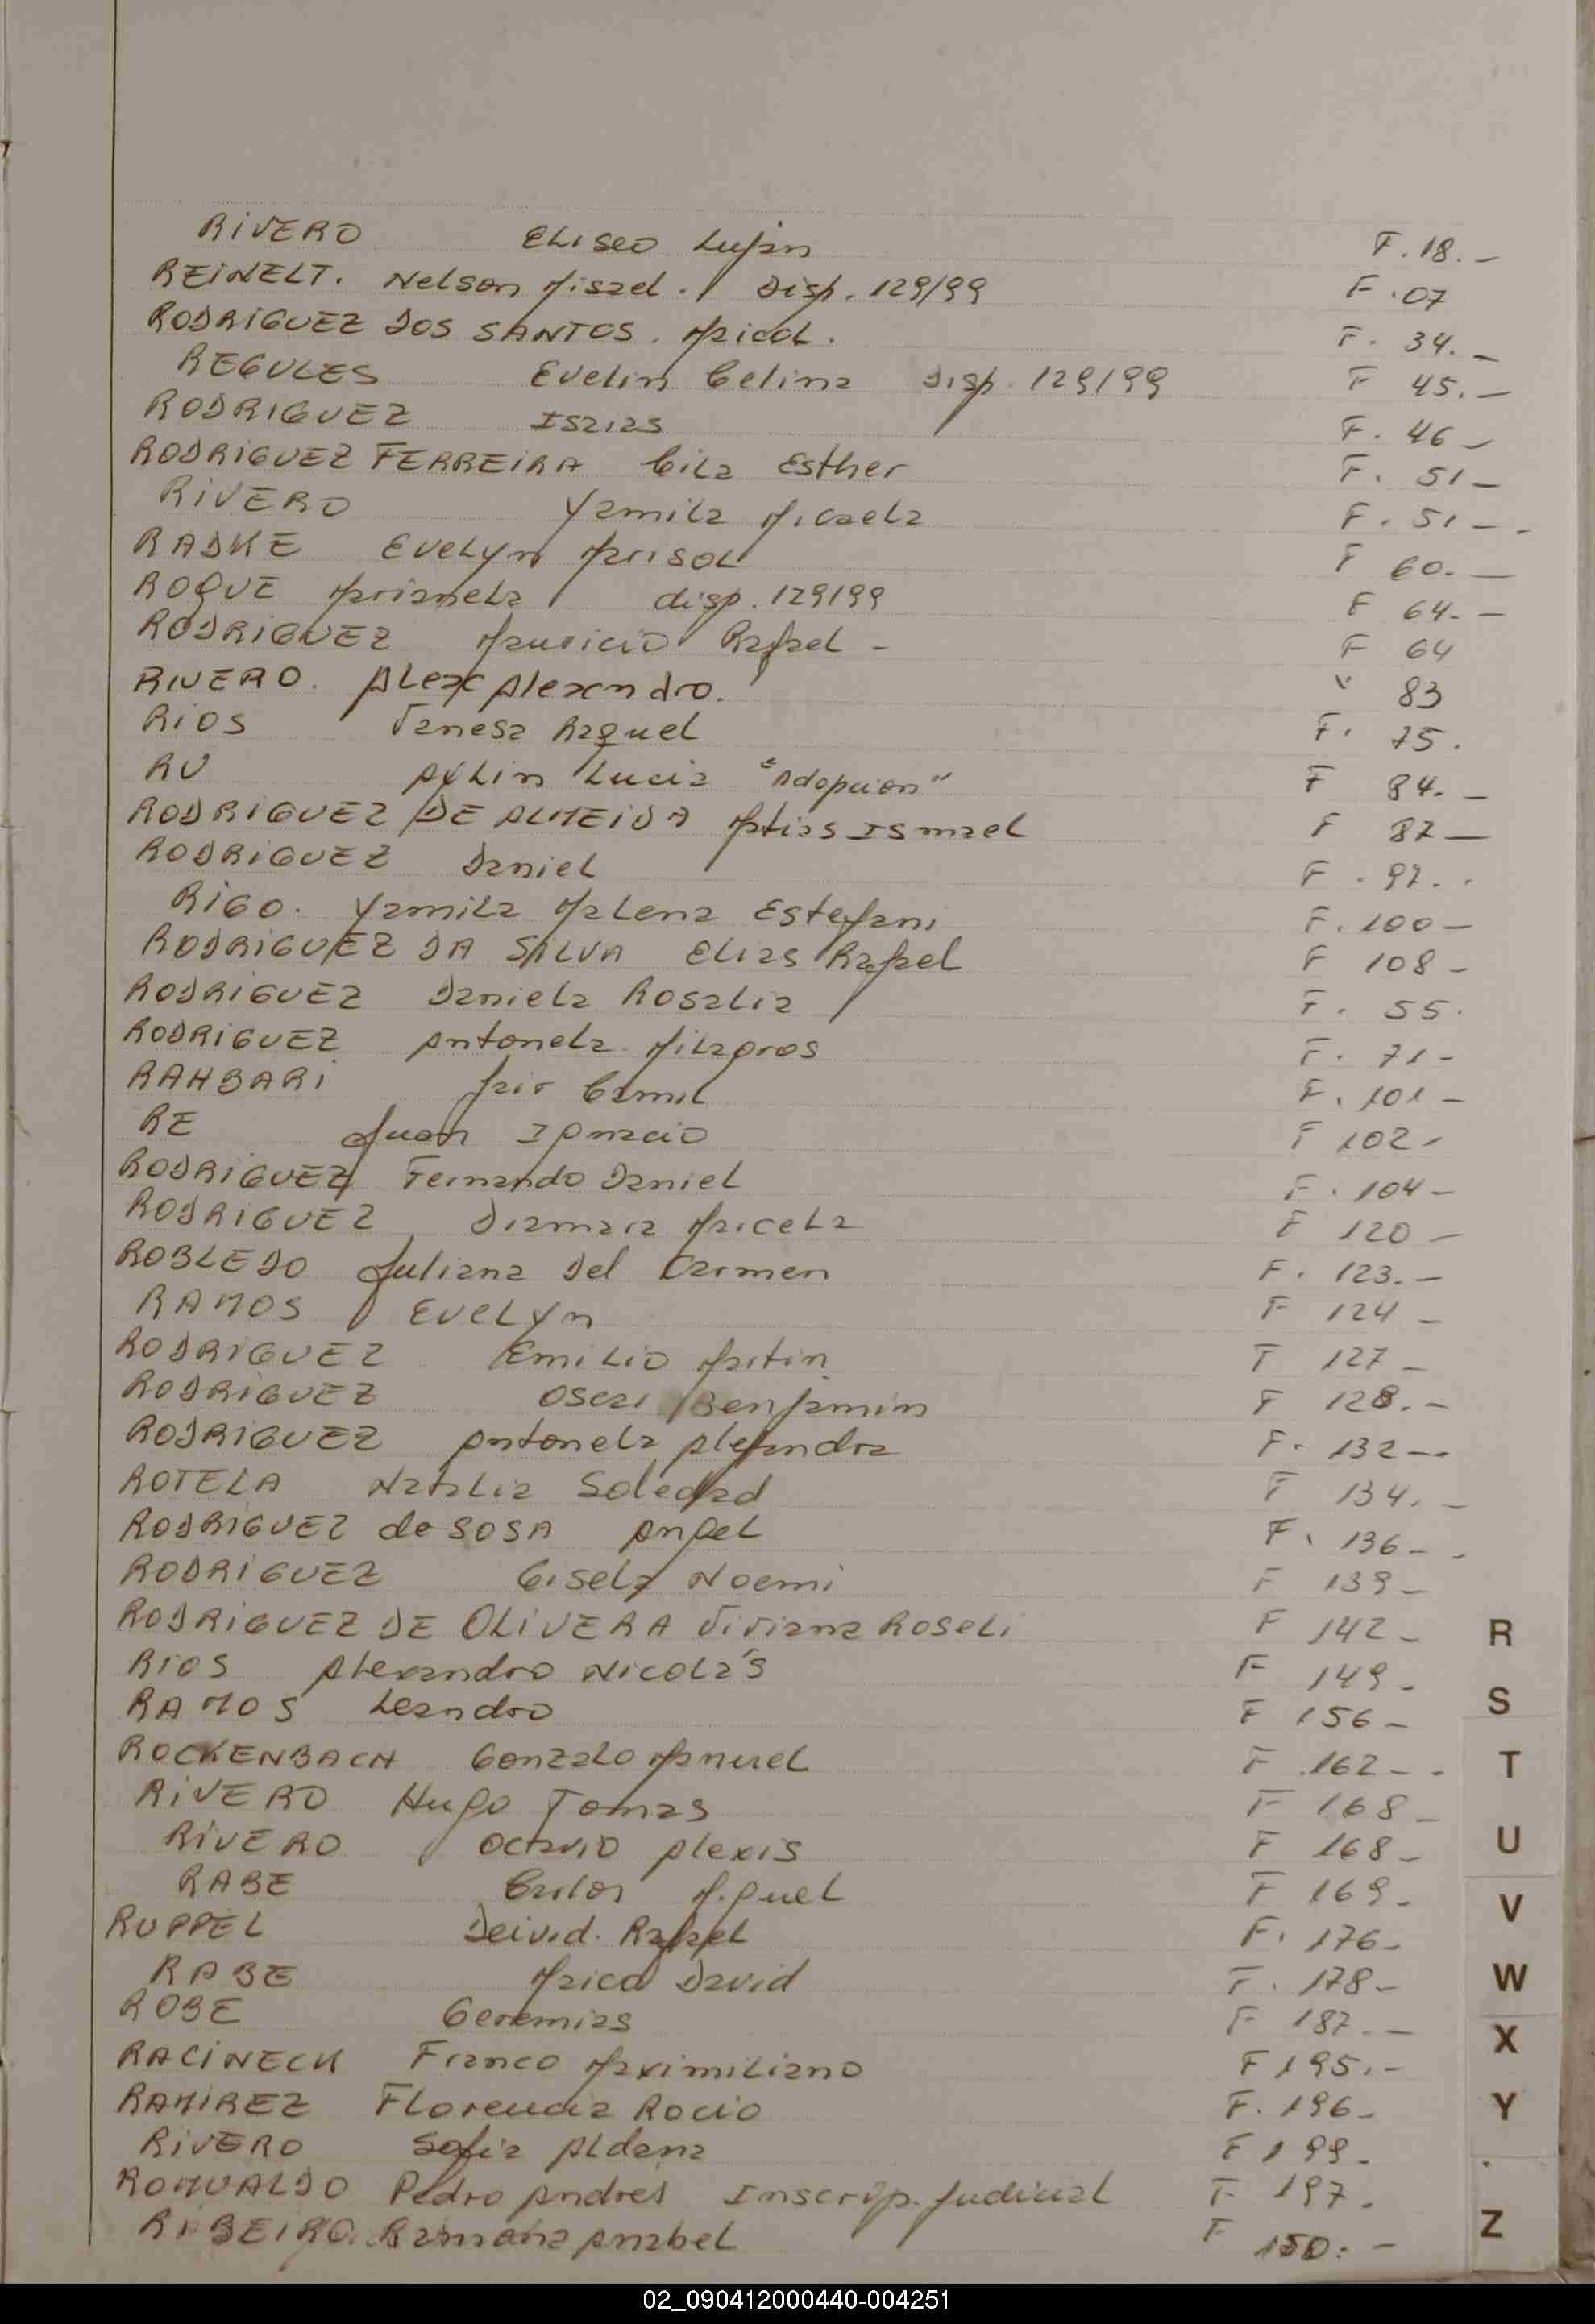 RIVERO Eliseo Luján F. 18. -
REINELT. Nelson Misael. Disp. 129/99 F. 07
RODRIGUEZ DOS SANTOS. Maicol. F. 34. -
REGULES Evelin Celina Disp. 129/99 F 45. -
RODRIGUEZ Isaias F. 46 -
RODRIGUEZ FERREIRA Cila Esther F. 51 -
RIVERO Yamila Micaela F. 51 - -
RADKE Evelyn Marisol F 60. -
ROQUE Marianela disp. 129/99 F 64. -
RODRIGUEZ Mauricio Rafael - F 64
RIVERO. Alex Alexandro. " 83
RIOS Vanesa Raquel F. 75.
RU Aylin Lucia "Adopcion" F 84. -
RODRIGUEZ DE ALMEIDA Matias Ismael F 87 -
RODRIGUEZ Daniel F. 97. .
RIGO. Yamila Malena Estefani F. 100 -
RODRIGUEZ DA SILVA Elias Rafael F 108 -
RODRIGUEZ Daniela Rosalia F. 55.
RODRIGUEZ Antonela Milagros F. 71 -
RAHBARI Camil F. 101 -
RE Juan Ignacio F 102 -
RODRIGUEZ Fernando Daniel F. 104 -
RODRIGUEZ Diamara Maricela F 120 -
ROBLEDO Juliana Del Carmen F. 123. -
RAMOS Evelyn F 124 -
RODRIGUEZ Emilio Martin F 127 -
RODRIGUEZ Oscar Benjamin F 128. -
RODRIGUEZ Antonela Alejandra F. 132 --
ROTELA Natalia Soledad F 134. -
RODRIGUEZ de SOSA Angel F. 136 - -
RODRIGUEZ Gisela Noemi F 139 -
RODRIGUEZ DE OLIVERA Viviana Roseli F 142 -
RIOS Alexandro Nicolás F 149 -
RAMOS Leandro F 156 -
ROCKENBACH Gonzalo Manuel F 162 - -
RIVERO Hugo Tomas F 168 -
RIVERO Octavio Alexis F 168 -
RABE Carlos Miguel F 169 -
RUPPEL Deivid. Rafael F. 176 -
RABE Maicol David F. 178 -
ROBE Geremias F 187. -
RACINECK Franco Maximiliano F 195. -
RAMIREZ Florencia Rocio F. 196 -
RIVERO Sofia Aldana F 199 -
ROMUALDO Pedro Andres Inscrip. Judicial F 197.
RIBEIRO. Anabel F 150. -
R
S
T
U
V
W
X
Y
Z
02_090412000440-004251